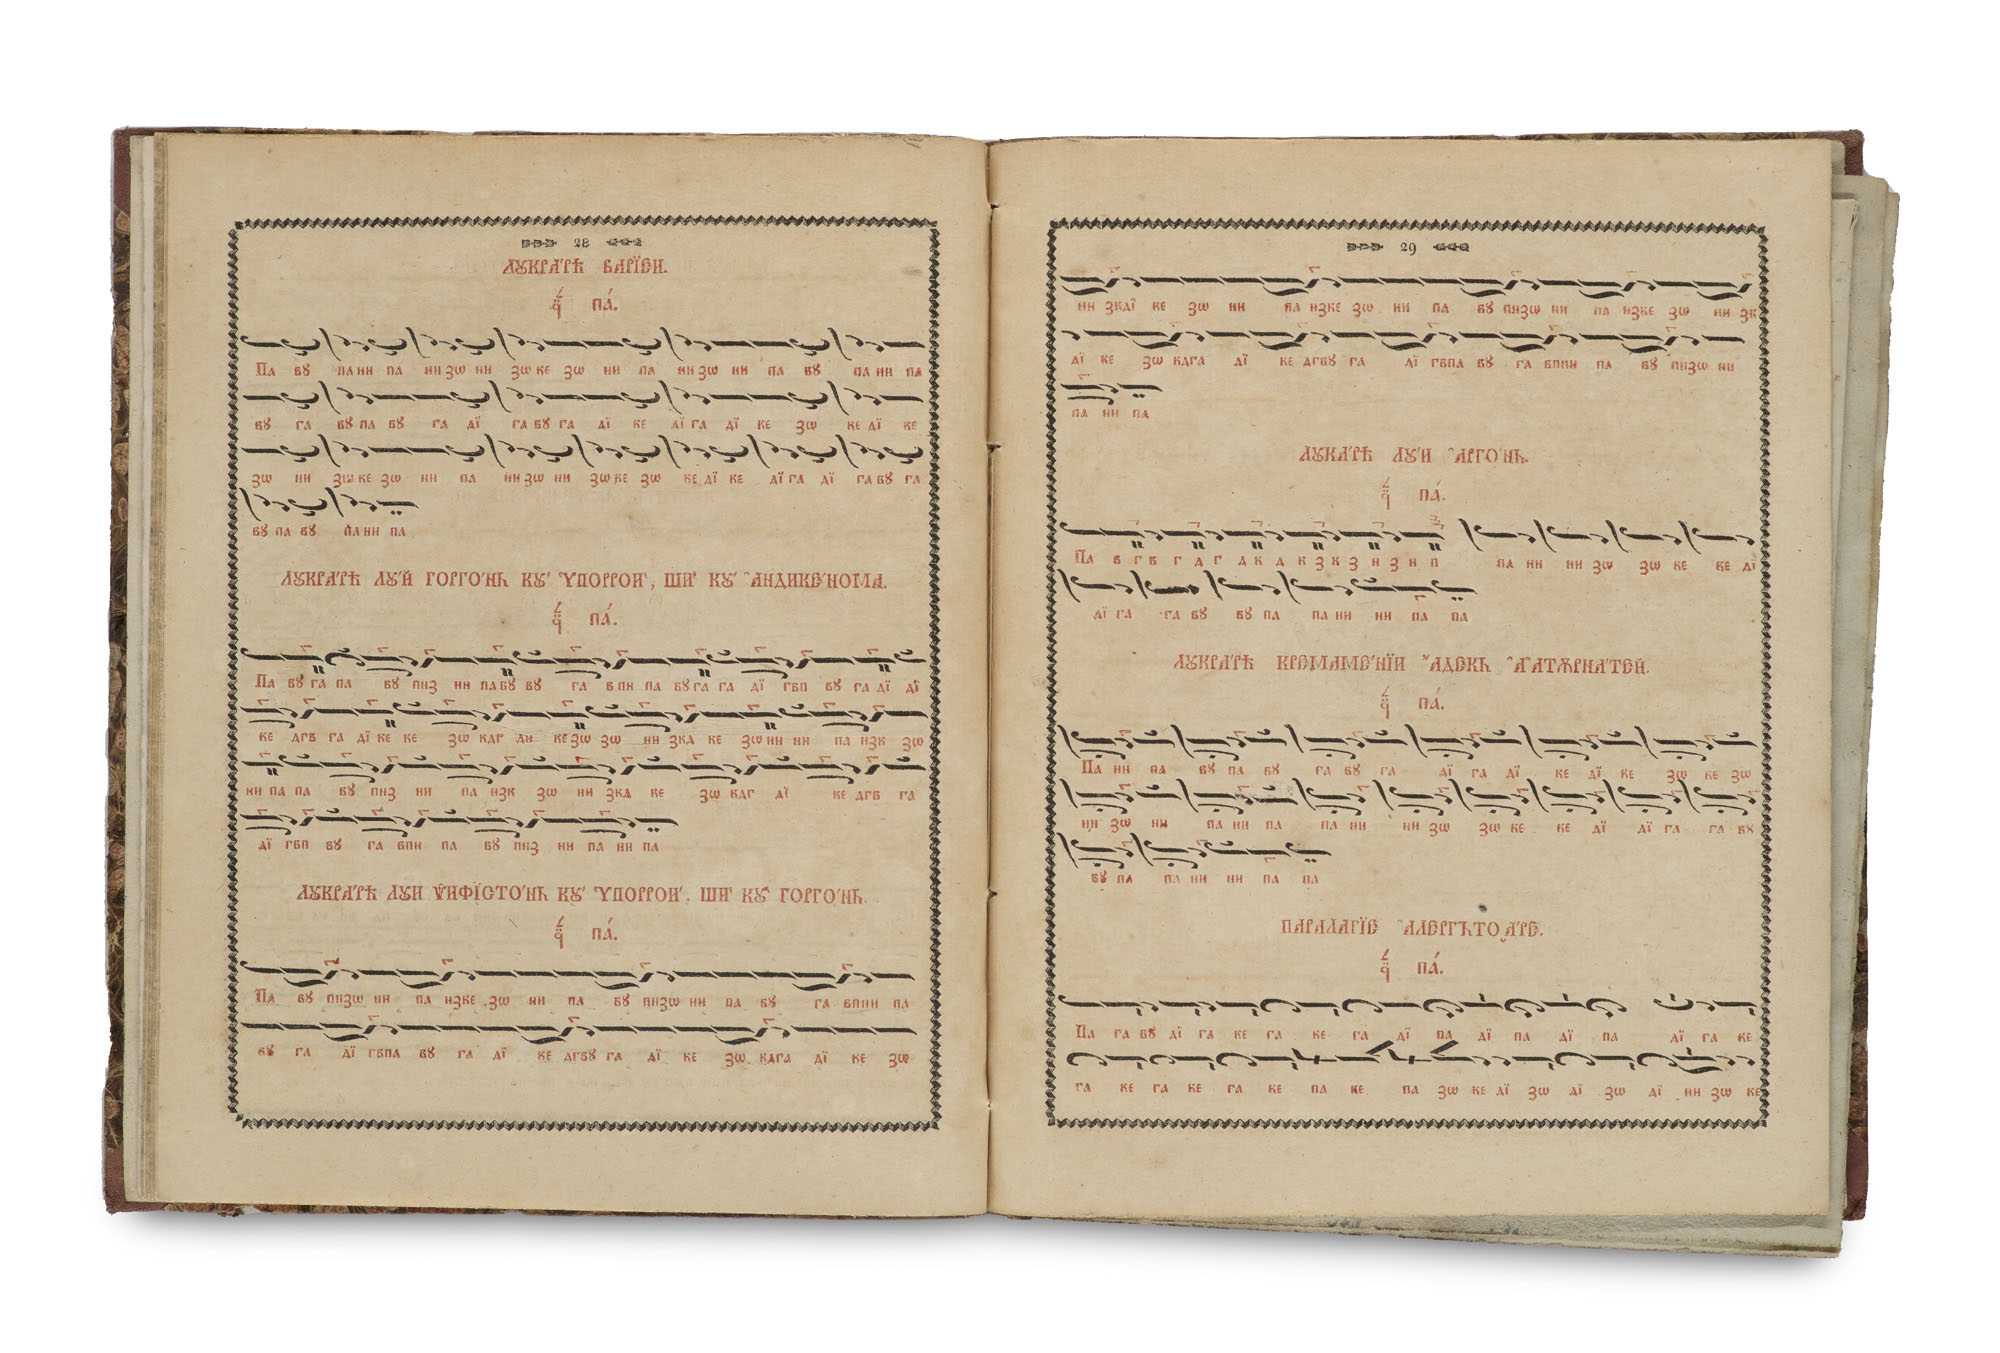 28
ЛꙊКРА́РѢ ВАРІ́ЕИ.
ПА́.
Па вꙋ па ни па ни зѡ ни зѡ ке зѡ ни па ни зѡ ни па вꙋ па ни па
вꙋ га вꙋ па вꙋ га дї га вꙋ га дї ке дї га дї ке зѡ ке дї ке
зѡ ни зѡ ке зѡ ни па ни зѡ ни зѡ ке зѡ ке дї ке дї га дї га вꙋ га
вꙋ па вꙋ па ни па
ЛꙊКРА́РѢ ЛꙊЙ ГОРГО́НꙊ КꙊ ѴПОРРОИ, ШИ КꙊ АНДИКЕ́НОМА.
ПА́.
Па вꙋ га па вꙋ пнз ни па вꙋ вꙋ га впн па вꙋ га га дї гвп вꙋ га дї дї
ке дгв га дї ке ке зѡ кдг дї ке зѡ зѡ ни зкд ке зѡ ни ни па нзк зѡ
ни па па вꙋ пнз ни па нзк зѡ ни зкд ке зѡ кдг дї ке дгв га
дї гвп вꙋ га впн па вꙋ пнз ни па ни па
ЛꙊКРА́РѢ ЛꙊИ ѰИФІСТО́НꙊ КꙊ ѴПОРРОИ, ШИ КꙊ ГОРГО́НꙊ.
ПА́.
Па вꙋ пнзѡ ни па нзке зѡ ни па вꙋ пнзѡ ни па вꙋ га впни па
вꙋ га дї гвпа вꙋ га дї ке дгвꙋ га дї ке зѡ кдга дї ке зѡ
29
ни зкдї ке зѡ ни па нзке зѡ ни па вꙋ пнзѡ ни па нзке зѡ ни зк
дї ке зѡ кдга дї ке дгвꙋ га дї гвпа вꙋ га впни па вꙋ пнзѡ ни
па ни па
ЛꙊКА́РѢ ЛꙊИ АРГО́НꙊ.
ПА́.
Па в г в г д г д к д к з к з н з н п па ни ни зѡ зѡ ке ке дї
дї га га вꙋ вꙋ па па ни ни па па
ЛꙊКРА́РѢ КРЕМАМЕ́НІЙ АДЕКЪ АГАТѪРНА́ТЕЙ.
ПА́.
Па ни па вꙋ па вꙋ га вꙋ га дї га дї ке дї ке зѡ ке зѡ
ни зѡ ни па ни па па ни ни зѡ зѡ ке ке дї дї га га вꙋ
вꙋ па па ни ни па па
ПАРАЛАГІЕ АЛЕРГЪТОА́РЕ.
ПА́.
Па га вꙋ дї га ке га ке га дї па дї па дї па дї га ке
га ке га ке га ке па ке па зѡ ке дї зѡ дї зѡ дї ни зѡ ке